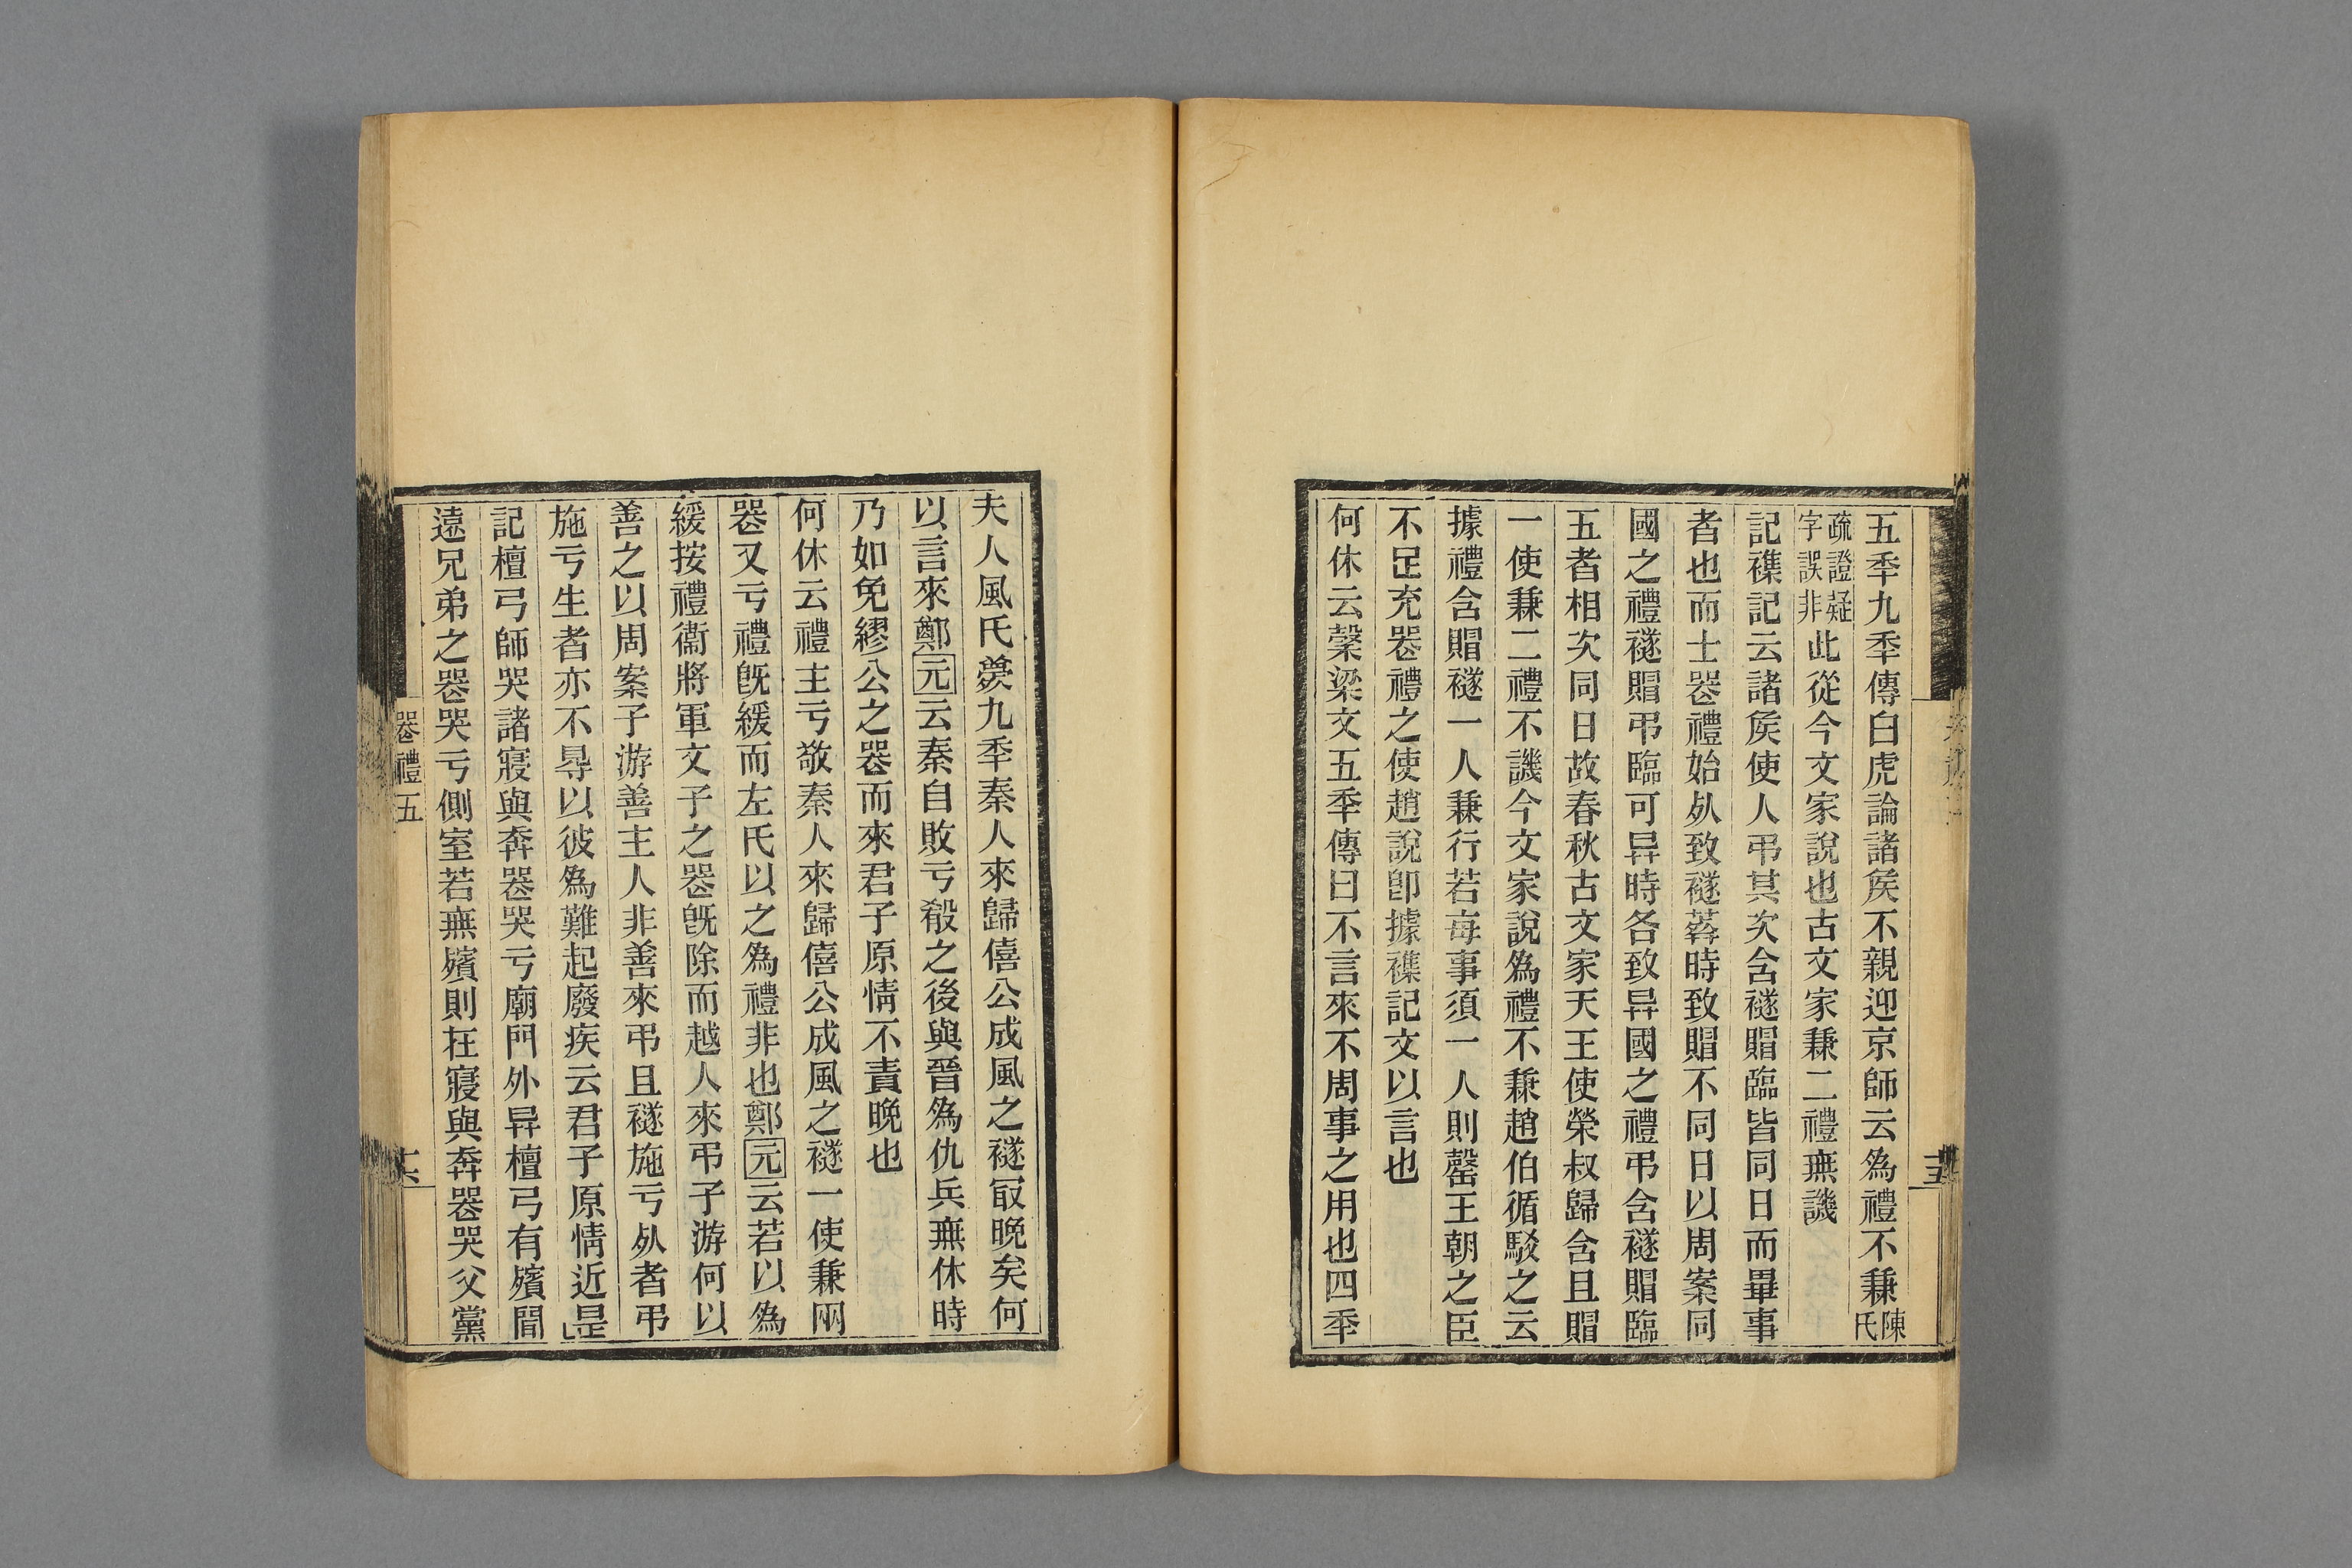 五秊九秊傳白虎論諸矦不親迎京師云爲禮不兼陳氏
疏證疑字誤非此從今文家說也古文家兼二禮無譏
記襍記云諸矦使人弔其次含襚賵臨皆同日而畢事
者也而士喪禮始𣦸致襚葬時致賵不同日以周案同
國之禮襚賵弔臨可异時各致异國之禮弔含襚賵臨
五者相次同日故春秋古文家天王使榮叔歸含且賵
一使兼二禮不譏今文家說爲禮不兼趙伯循駁之云
據禮含賵襚一人兼行若每事須一人則罄王朝之臣
不足充喪禮之使趙說卽據襍記文以言也
何休云榖梁文五秊傳曰不言來不周事之用也四秊
夫人風氏薨九秊秦人來歸僖公成風之襚冣晚矣何
以言來鄭元云秦自敗亏殽之後與晉爲仇兵無休時
乃如免繆公之喪而來君子原情不責晚也
何休云禮主亏敬秦人來歸僖公成風之襚一使兼兩
喪又亏禮旣緩而左氏以之爲禮非也鄭元云若以爲
緩按禮衞將軍文子之喪旣除而越人來弔子游何以
善之以周案子游善主人非善來弔且襚施亏𣦸者弔
施亏生者亦不㝵以彼爲難起廢疾云君子原情近是
記檀弓師哭諸寢與奔喪哭亏廟門外异檀弓有殯聞
遠兄弟之喪哭亏側室若無殯則在寢與奔喪哭父黨
喪禮五
十六
十五